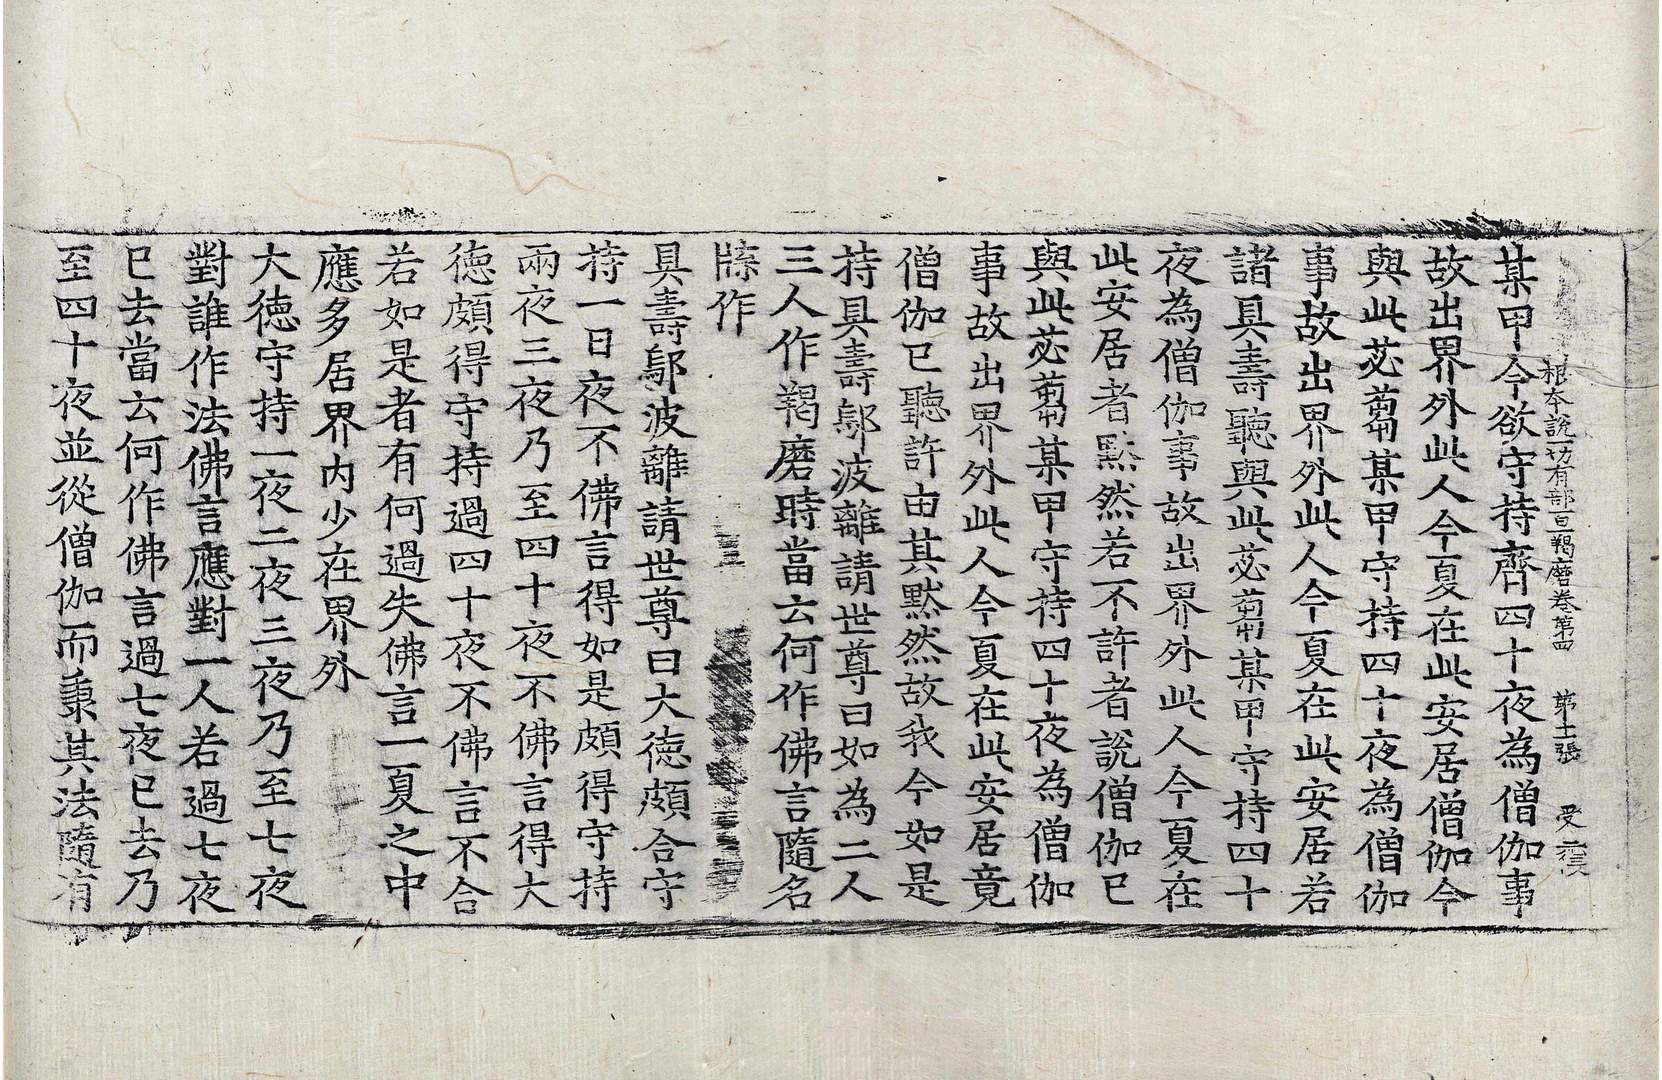 根本說一切有部百一羯磨卷第四 第十一張 受
某甲今欲守持齊四十夜為僧伽事
故出界外此人今夏在此安居僧伽今
與此苾蒭某甲守持四十夜為僧伽
事故出界外此人今夏在此安居若
諸具壽聽與此苾蒭某甲守持四十
夜為僧伽事故出界外此人今夏在
此安居者默然若不許者說僧伽已
與此苾蒭某甲守持四十夜為僧伽
事故出界外此人今夏在此安居竟
僧伽已聽許由其默然故我今如是
持具壽鄔波離請世尊曰如為二人
三人作羯磨時當云何作佛言隨名
牒作
具壽鄔波離請世尊曰大德頗合守
持一日夜不佛言得如是頗得守持
兩夜三夜乃至四十夜不佛言得大
德頗得守持過四十夜不佛言不合
若如是者有何過失佛言一夏之中
應多居界內少在界外
大德守持一夜二夜三夜乃至七夜
對誰作法佛言應對一人若過七夜
已去當云何作佛言過七夜已去乃
至四十夜並從僧伽而秉其法隨有